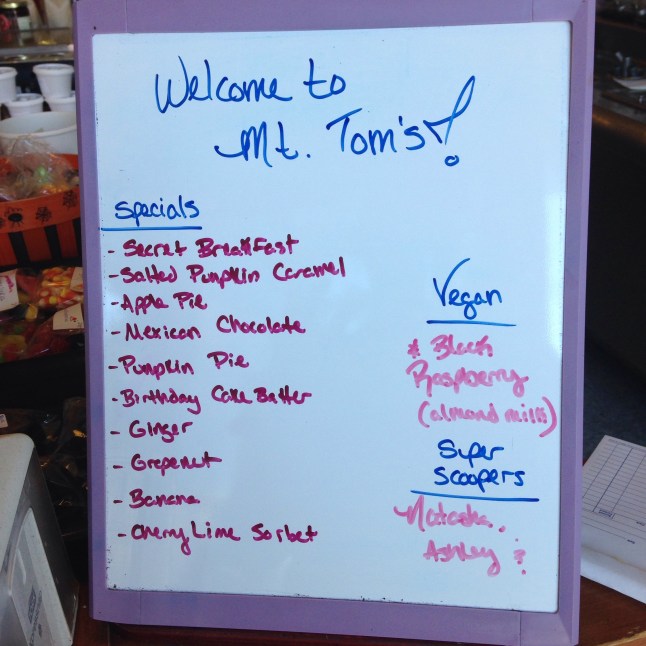 Welcome to
Mt. Tom's!
Specials
- Secret Breakfast
- Salted Pumpkin Caramel
- Apple Pie
- Mexican Chocolate
- Pumpkin Pie
- Birthday Cake Batter
- Ginger
- Grapenut
- Banana
- Cherry Lime Sorbet
Vegan
* Black
Raspberry
(almond milk)
Super
Scoopers
Natasha
Ashley